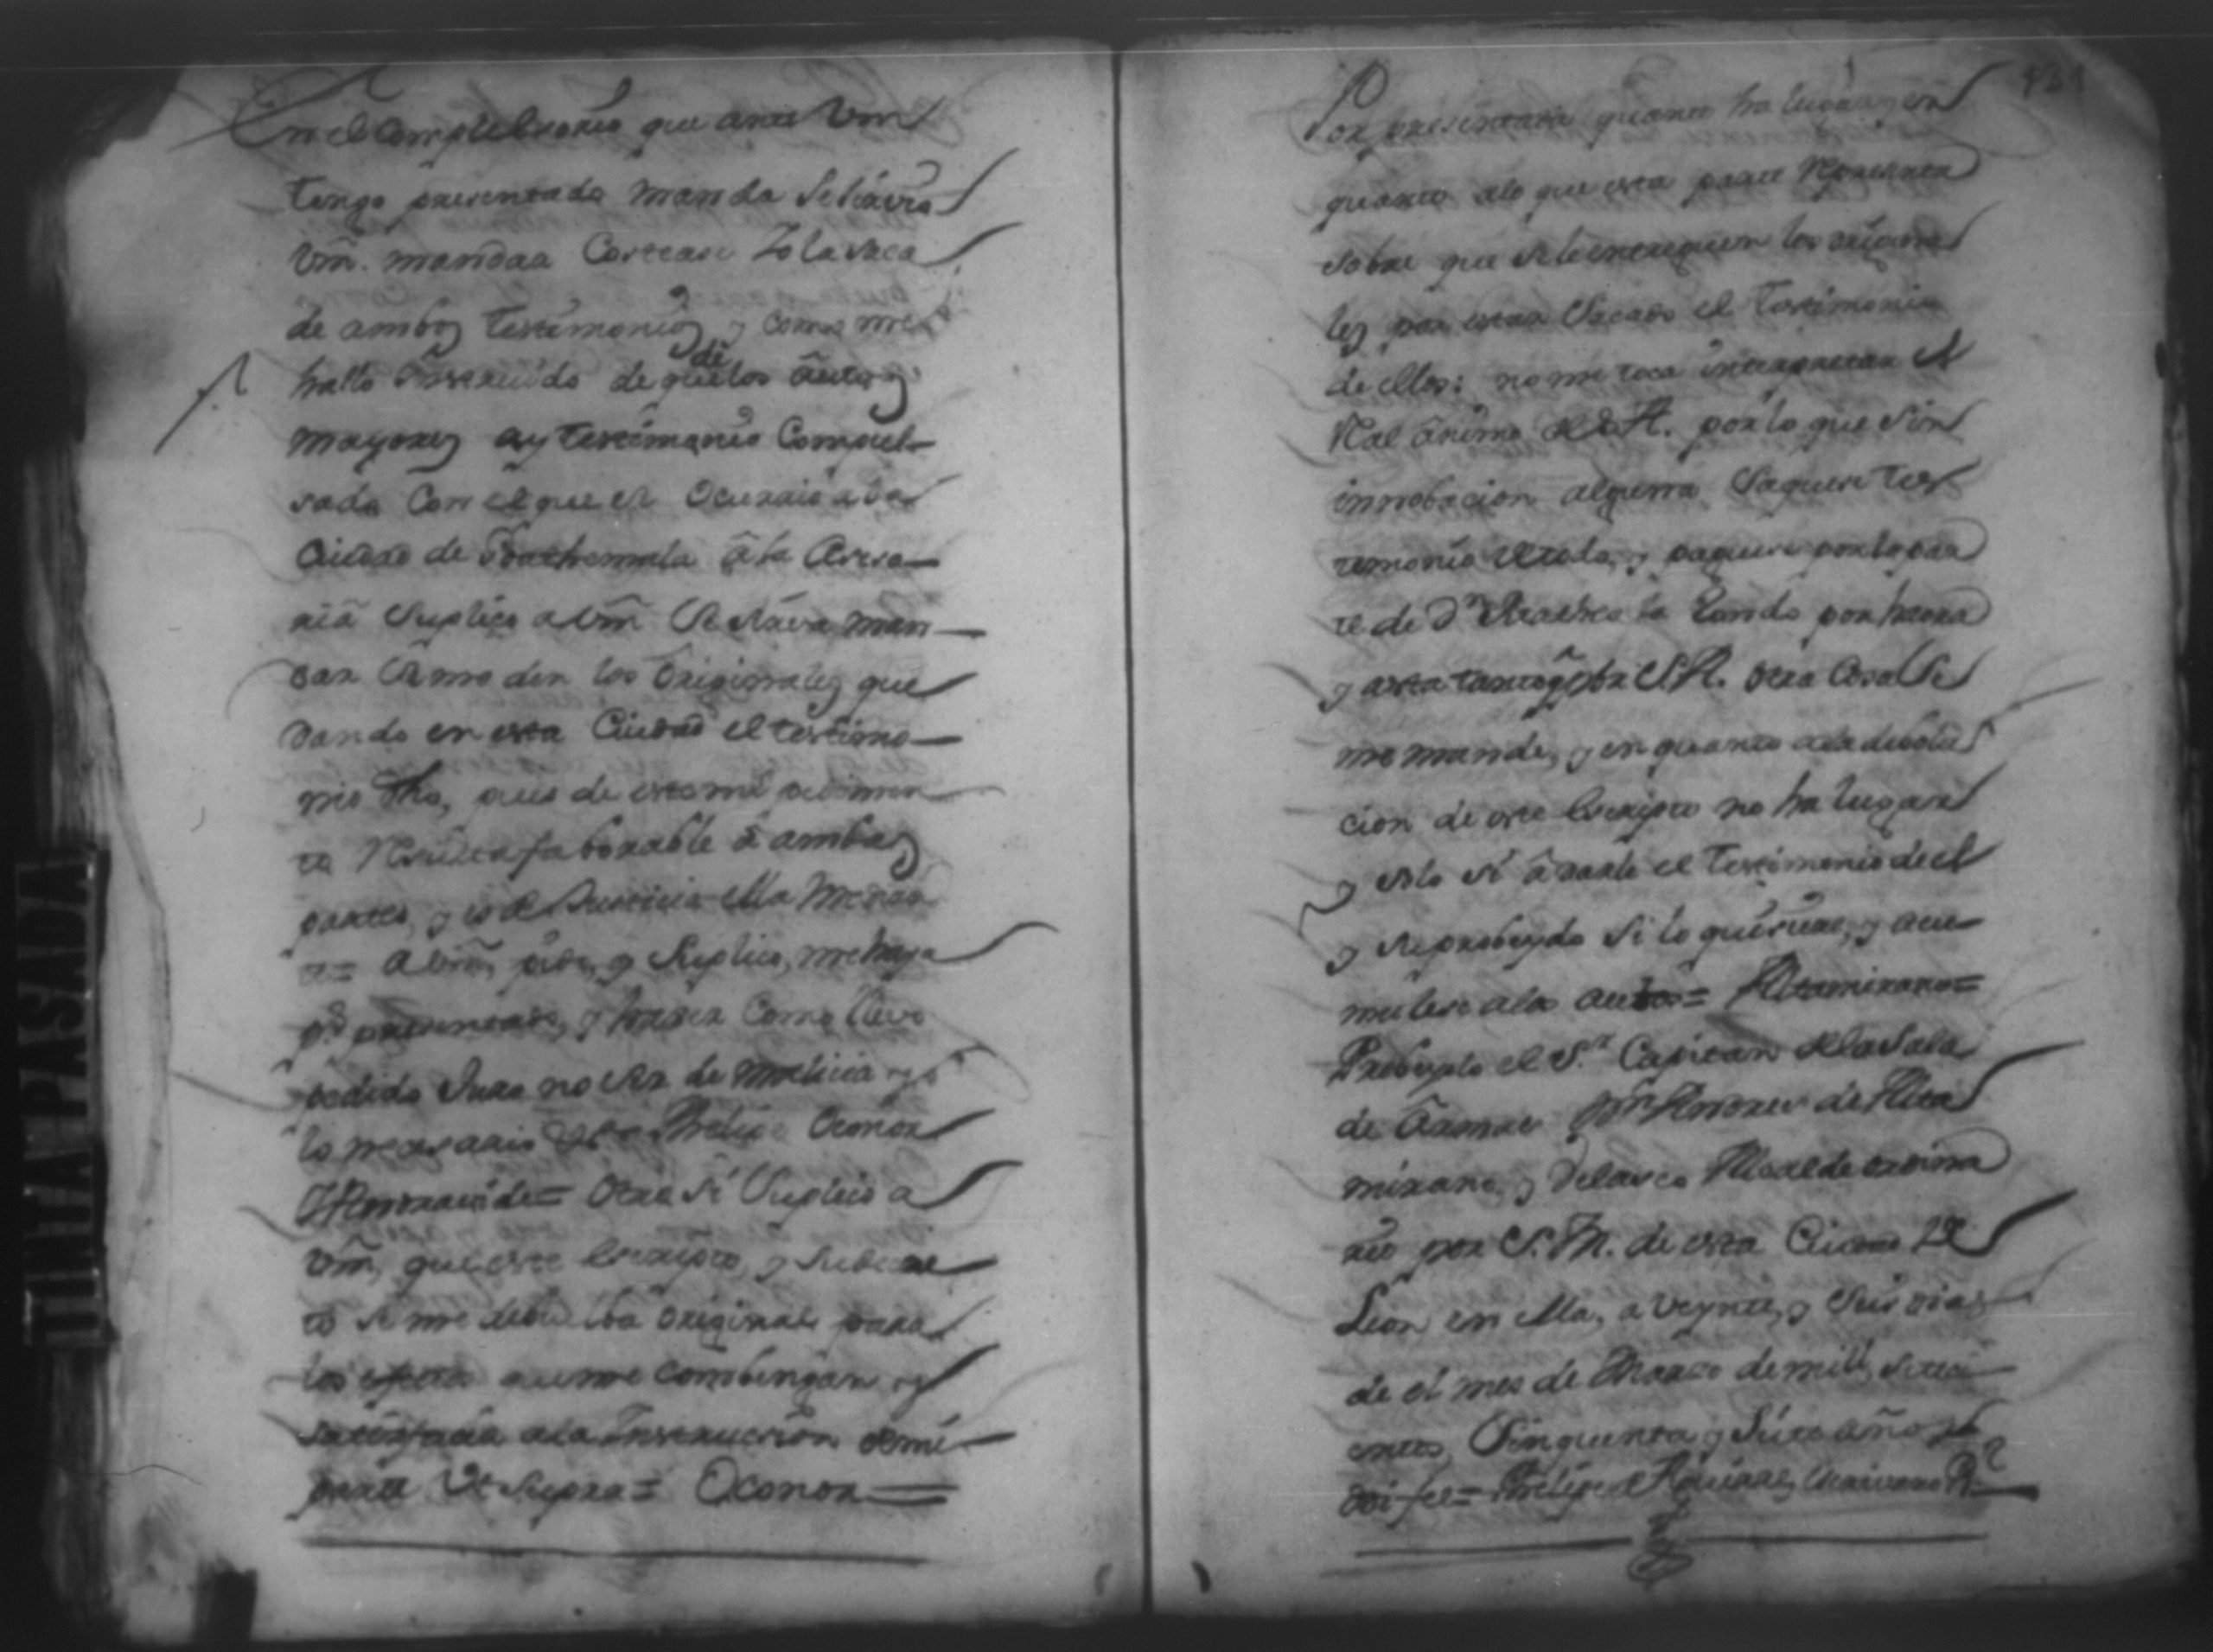 En el Compulsorio que ante Vm
tengo presentado manda se sirva
Vm. mandar Cortear la saca
de ambos testimonios y como me
hallo Ynstruido de que de los autos
mayores ay testimonio Compul-
sado Con el que se Ocurrió a la
Ciudad de Goathemala â la Aseso-
ria Suplico a Vm Se sirva man-
dar Se me den los Originales que
dando en esta Ciudad el testimo-
nio dho, pues de este
te Resulta faborable â ambas
partes, y es de Justicia ella median
te = A Vm pido, y Suplico, me haya
por presentado, y probeer Como llevo
pedido Juro no ser de malicia y
lo necesario Phelipe Oconor
Y Amoraui de = Otro si Suplico a
Vm, que este Escripto, y su decre
to se me debuelba Original para
los efectos que me combengan y
satisfacer a la Ynstruccion de mi
parte Vt Supra = Oconor =
131
Por presentada quanto ha lugar y en
quanto alo que esta parte Representa
sobre que se le entreguen los origina
les por estar Sacado el Testimonio
de ellos: no me toca interpretar el
Real ânimo de S.A. por lo que sin
innobacion alguna Saquese tes
timonio de todo, y paguese por la par
te de Dn la Condo por haora
y asta tanto que por S.A. otra Cosa Se
me mande, y en quanto a la debolu
cion de este Escripto no ha lugar
y solo si â darle el Testimonio de el
y su probeydo si lo quisiere, y acu
mulese a los autos = Altamirano =
Probeyolo el S.r Capitan de la Sala
de Armas Dn Andres de Alta
mirano, y Velasco Alcalde ordina
rio por S.M. de esta Ciudad de
Leon en ella, a veynte, y Seis dias
de el mes de Marzo de mill, setesi
entos, Sinquenta, y Siete años
doi fee = Phelipe de Aguilar, Escrivano R.l